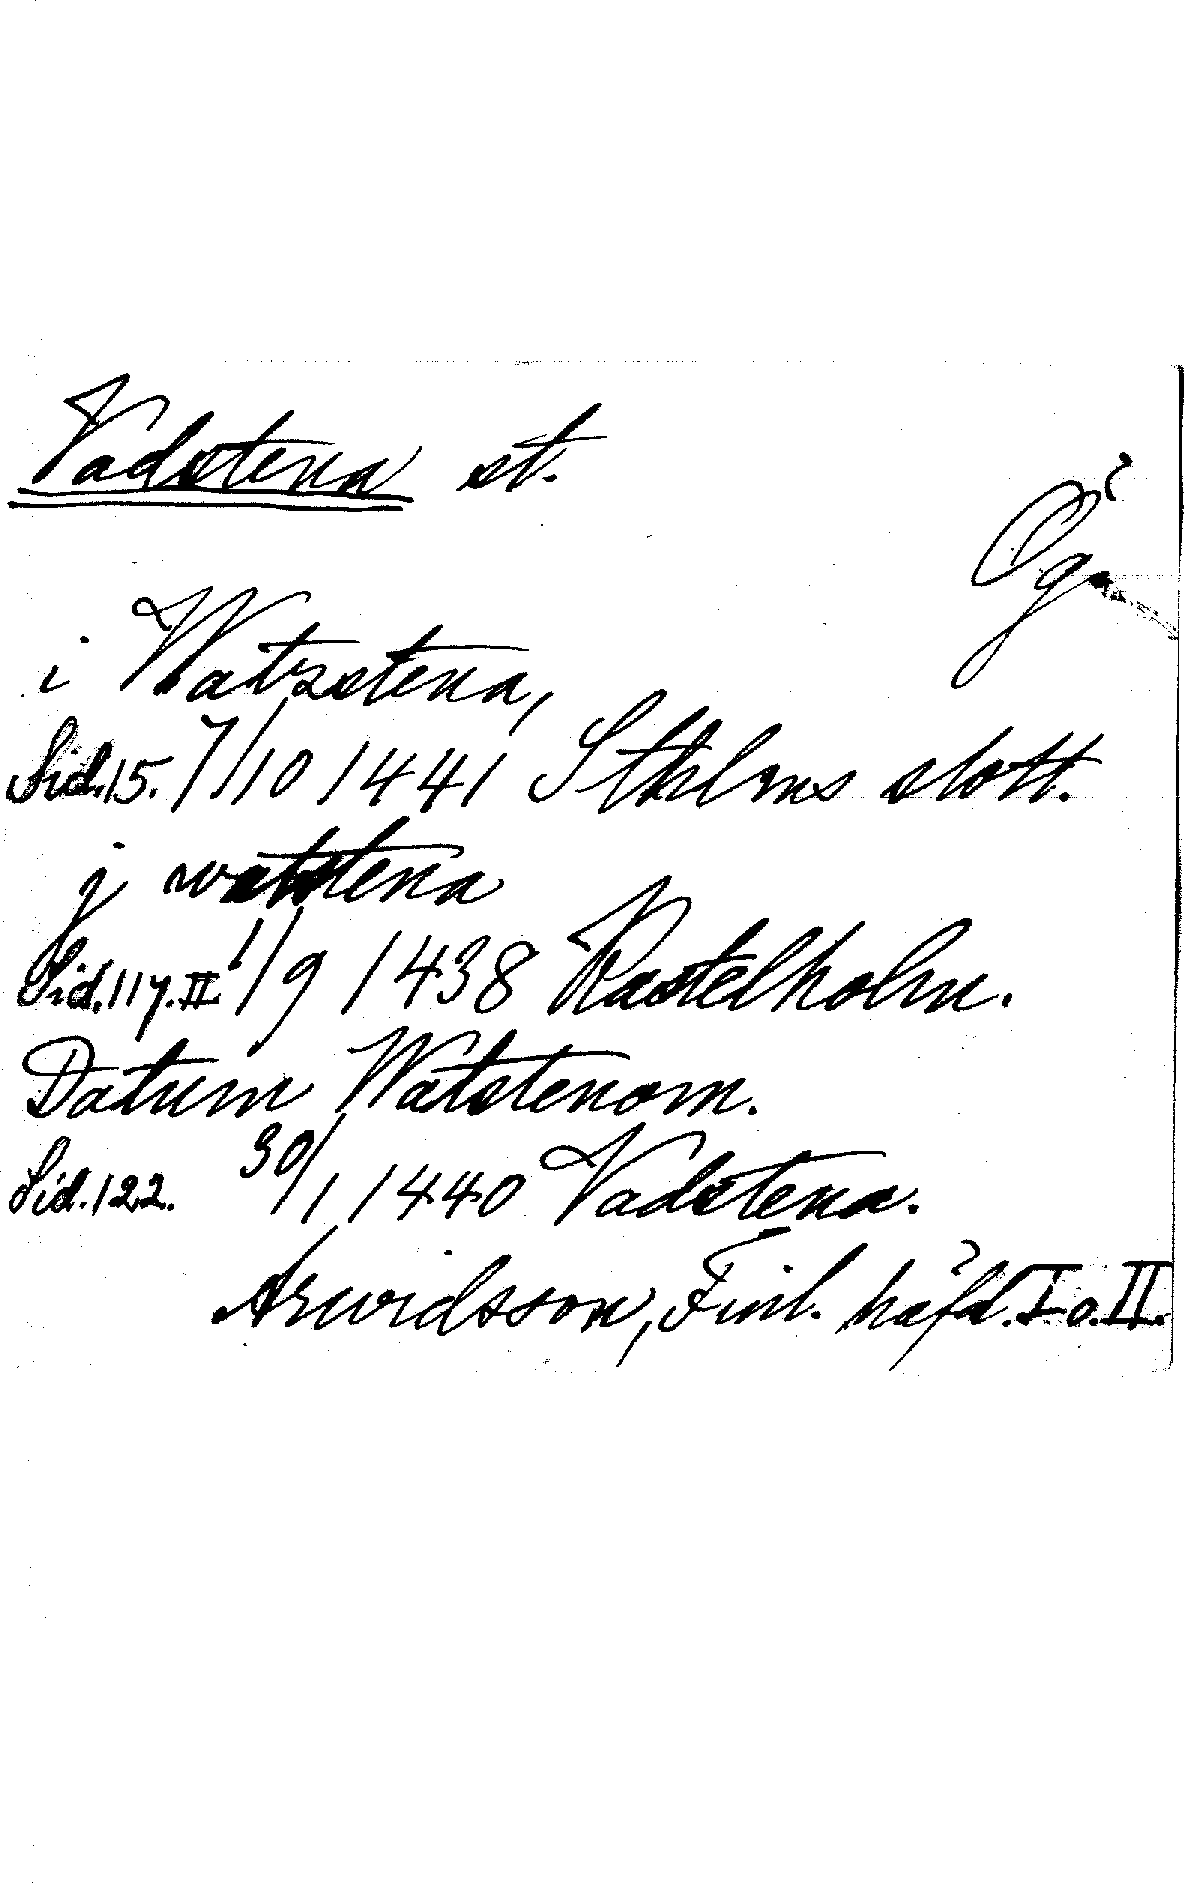 Vadstena st.
Ög.
i Watzstena,
Sid. 15. 17/10 1441 Sthlms slott.
j watstena
Sid. 117. II. 1/9 1438 Kastelholm.
Datum Watstenom.
Sid. 122. 30/1 1440 Vadstena.
Arwidsson, Finl. häfd. I o. II.